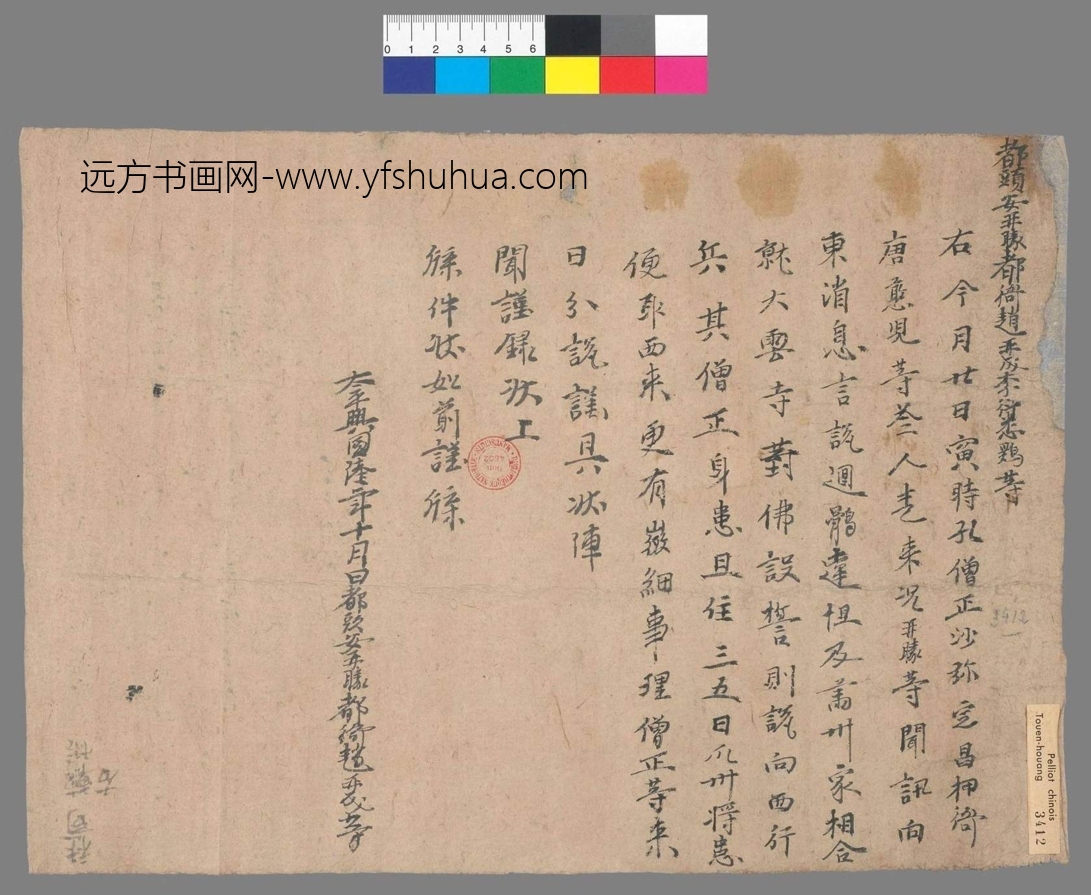 都頭安再勝都衙趙再成李衙悉鷄等
右今月廿日寅時孔僧正沙弥定昌押衙
唐憨児等叁人走来况再勝等聞訊向
東消息言説迴鶻達怛及肅州家相合
就大雲寺對佛設誓則説向西行
兵其僧正身患且住三五日瓜州將患
便取西来更有微細事理僧正等来
日分説謹具狀陳
聞謹録狀上
牒件狀如前謹牒
太平興國陸年十月日都頭安再勝都衙趙再成等
远方书画网-www.yfshuhua.com
0 1 2 3 4 5 6
Pelliot chinois
Touen-houang
3412
3412